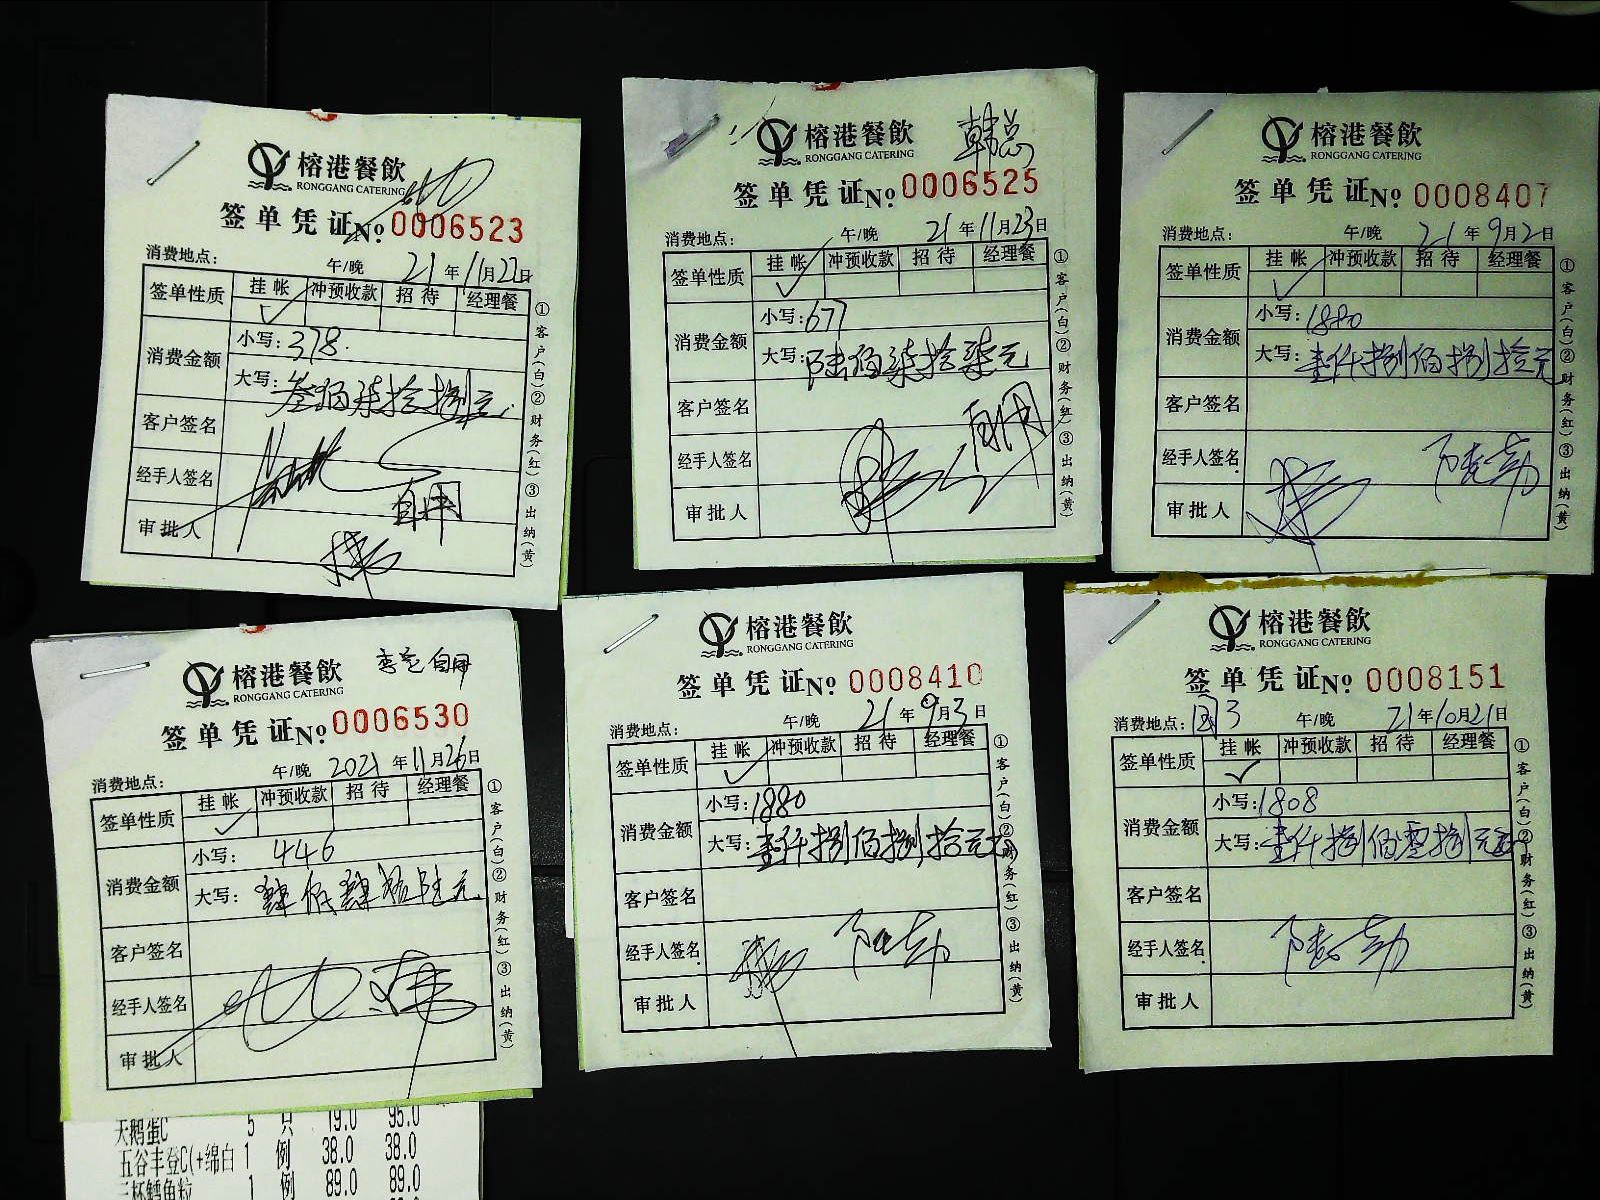 榕港餐飲
RONGGANG CATERING
签单凭证№ 0006523
消费地点: 午/晚 21年11月22日
签单性质 挂帐 冲预收款 招待 经理餐
消费金额 小写:378.
大写:叁佰柒拾捌元
客户签名
经手人签名
自用
审批人
①客户(白)②财务(红)③出纳(黄)
榕港餐飲
韩总
RONGGANG CATERING
签单凭证№ 0006525
消费地点: 午/晚 21年11月23日
签单性质 挂帐 冲预收款 招待 经理餐
消费金额 小写:677
大写:陆佰柒拾柒元
客户签名
自用
经手人签名
审批人
①客户(白)②财务(红)③出纳(黄)
榕港餐飲
RONGGANG CATERING
签单凭证№ 0008407
消费地点: 午/晚 21年9月2日
签单性质 挂帐 冲预收款 招待 经理餐
消费金额 小写:1880
大写:壹仟捌佰捌拾元
客户签名
经手人签名
审批人
①客户(白)②财务(红)③出纳(黄)
榕港餐飲
李总自用
RONGGANG CATERING
签单凭证№ 0006530
消费地点: 午/晚 2021年11月26日
签单性质 挂帐 冲预收款 招待 经理餐
消费金额 小写: 446
大写:肆佰肆拾陆元
客户签名
经手人签名
审批人
①客户(白)②财务(红)③出纳(黄)
天鹅蛋C 5 只 19.0 95.0
五谷丰登C(+绵白 1 例 38.0 38.0
三杯鳕鱼粒 1 例 89.0 89.0
榕港餐飲
RONGGANG CATERING
签单凭证№ 0008410
消费地点: 午/晚 21年9月3日
签单性质 挂帐 冲预收款 招待 经理餐
消费金额 小写:1880
大写:壹仟捌佰捌拾元
客户签名
经手人签名
审批人
①客户(白)②财务(红)③出纳(黄)
榕港餐飲
RONGGANG CATERING
签单凭证№ 0008151
消费地点: 午/晚 21年10月21日
签单性质 挂帐 冲预收款 招待 经理餐
消费金额 小写:1808
大写:壹仟捌佰零捌元
客户签名
经手人签名
审批人
①客户(白)②财务(红)③出纳(黄)